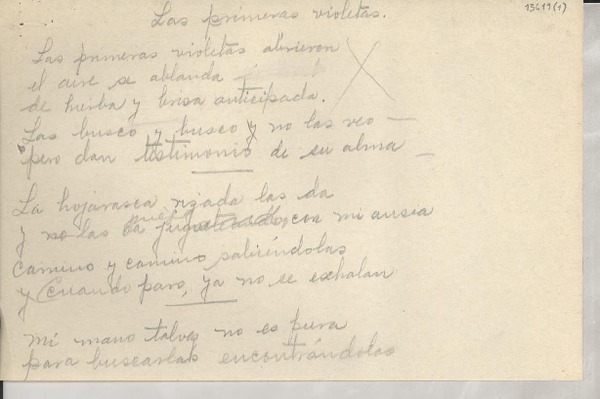 13619(1)
Las primeras violetas.
Las primeras violetas abrieron
el aire se ablanda
de hierba y brisa anticipada.
Las busco y busco y no las veo
pero dan testimonio de su alma
La hojarasca rizada las da
y no las da con mi ansia
Camino y camino
y Cuando paro, ya no se exhalan
Mi mano talvez no es pura
para buscarlas encontrándolas